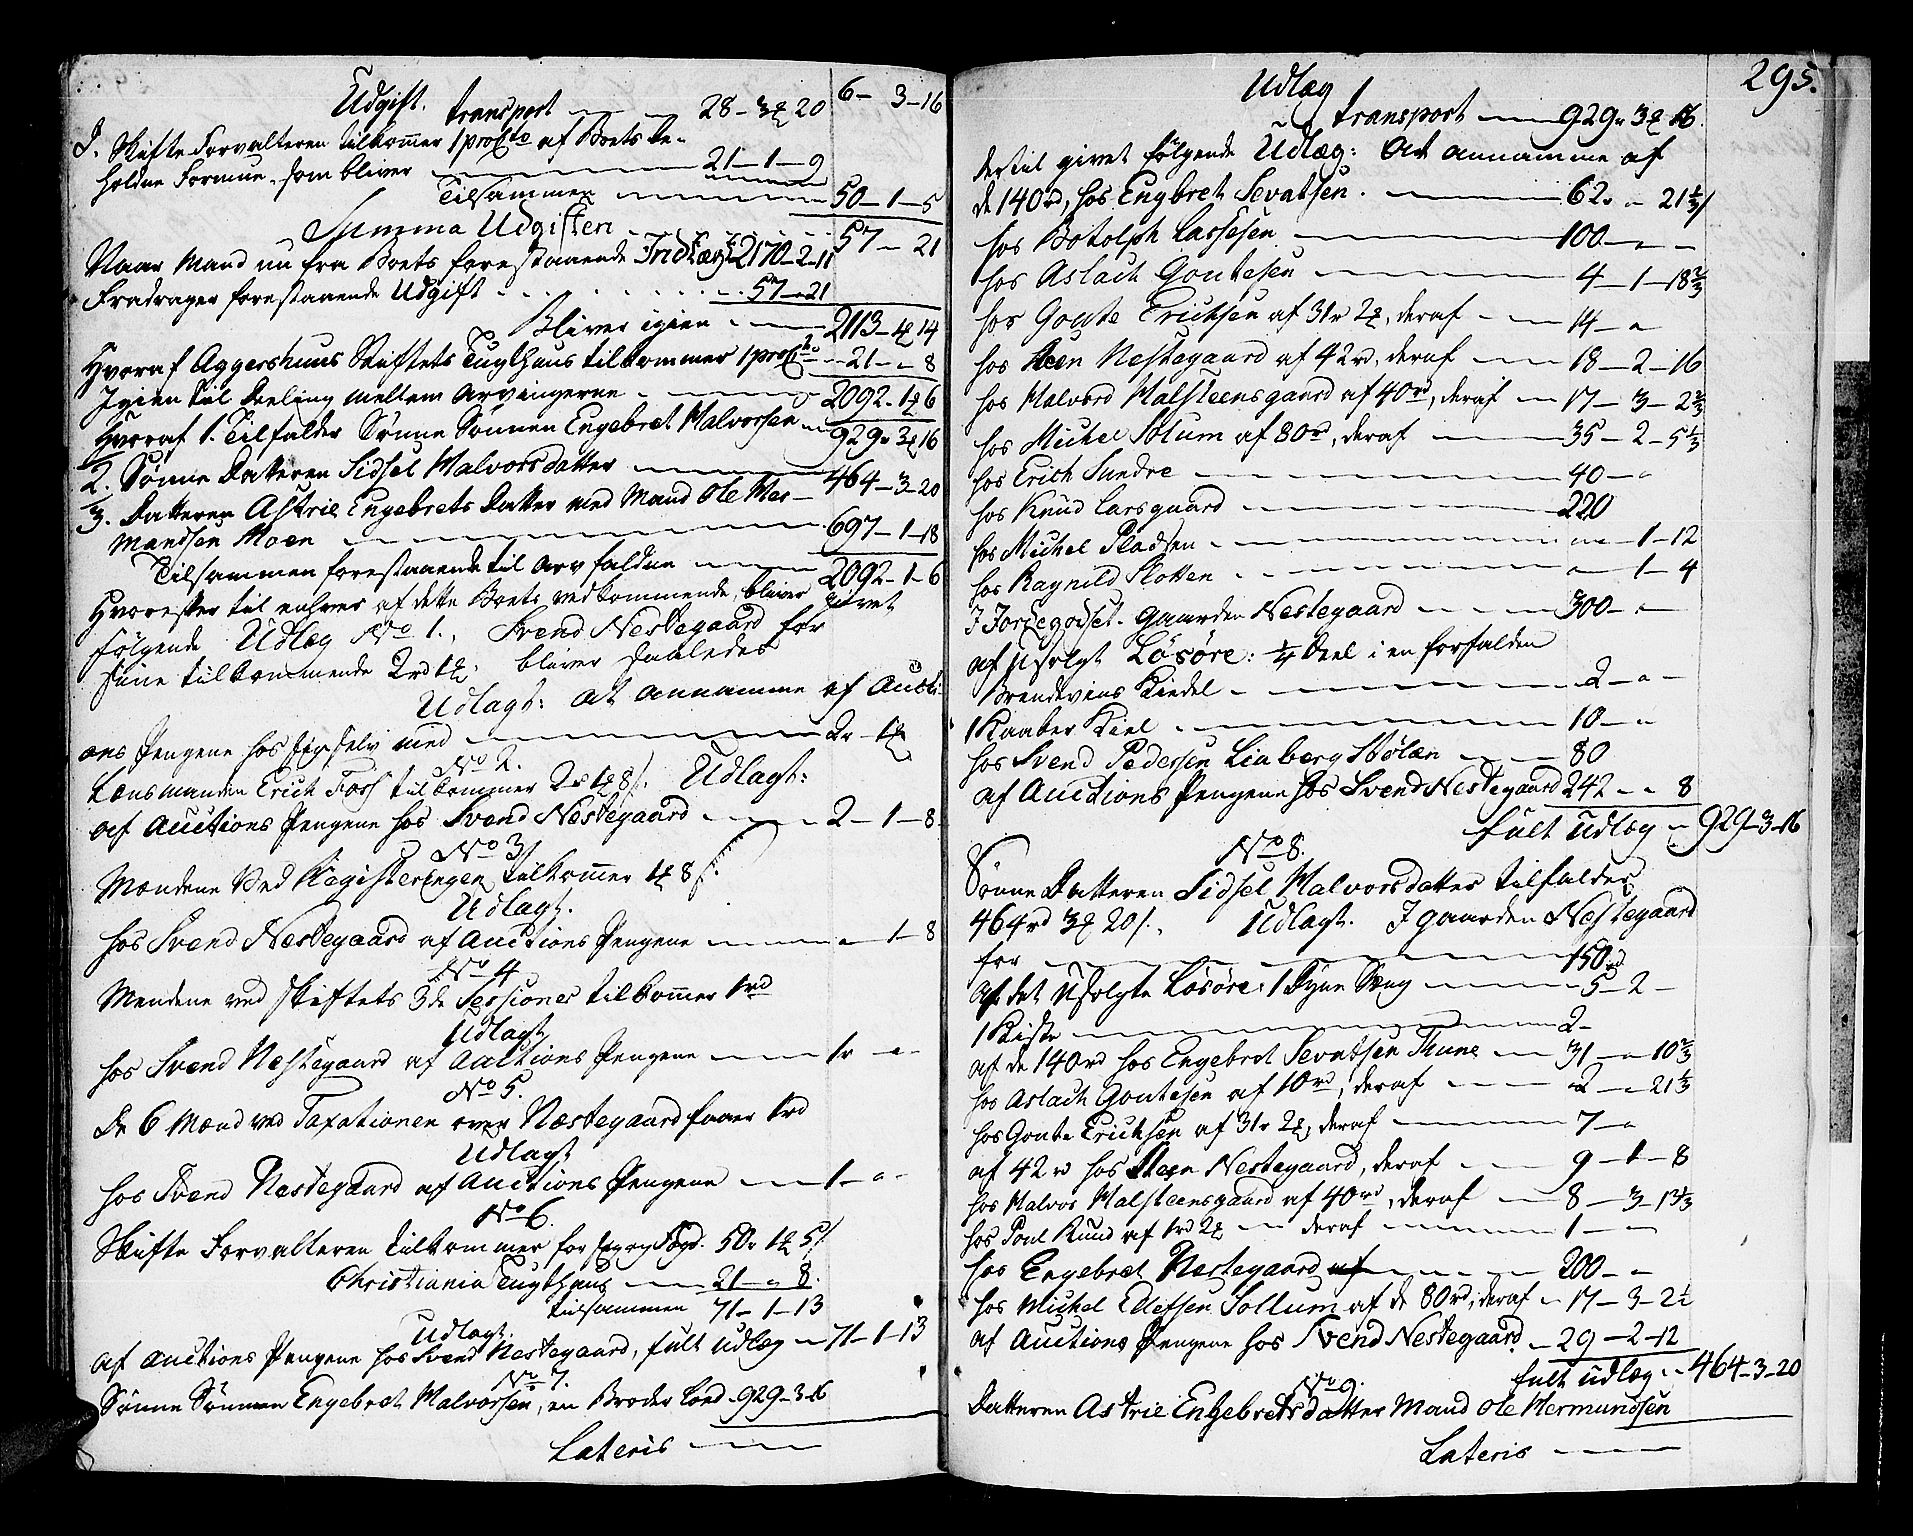 Udgift.
transport — — 28 — 3 — 20 6 — 3 — 16
Skifte Forvalteren tilkommer 1 procto af Boets be-
holdne Formue, som bliver — 21 — 1 — 9
Tilsammen — 50 — 1 — 5
Summa Udgiften — 57 — 21
Naar Mand nu fra Boets forestaaende Indtægt 2170 — 2 — 11
Fradrager forestaaende Udgift — 57 — 21
Bliver igien — 2113 — 1 — 14
Hvoraf Aggershuus Stiftets Tugthuus tilkommer 1 procto — 21 — " — 8
Igien til Deeling mellem Arvingerne — 2092 — 1 — 6
Hvoraf 1. Tilfalder Sønne Sønnen Engebret Halvorsen — 929 — 3 — 16
2. Sønne Datteren Sidsel Halvorsdatter — 464 — 3 — 20
3. Datteren Astrie Engebrets Datter med Mand Ole Her-
mandsen Moen — 697 — 1 — 18
Tilsammen forestaaende til arv faldne — 2092 — 1 — 6
Hvorefter til enhver af dette Boets vedkommende, bliver givet
følgende Udlæg No 1. Svend Nestegaard for
sine tilkommende 2rd 1 bliver saaledes
Udlagt: At annamme af Aucti-
ons Pengene hos sig selv med — 2 — 1
No 2.
Lensmanden Erich Foss tilkommer 2rd 1 8 s. Udlagt:
af Auctions Pengene hos Svend Nestegaard — 2 — 1 — 8
No 3
Mændene ved Registeringen tilkommer 1 8 s.
Udlagt.
hos Svend Nestegaard af Auctions Pengene — " — 1 — 8
No 4
Mendene ved skiftets 3de Sessioner tilkommer 1rd
Udlagt
hos Svend Nestegaard af Auctions Pengene — 1r — "
No 5.
De 6 Mænd ved Taxationen over Næstegaard faaer 1rd
Udlagt
hos Svend Nestegaard af Auctions Pengene — 1 — " —
No 6.
Skifte Forvalteren tilkommer for sig og Fogd. 50 1 5 s
Christiania Tugthuus — 21 — " 8.
tilsammen 71 — 1 — 13
Udlagt.
af Auctions Pengene hos Svend Nestegaard, fult Udlæg — 71 — 1 — 13
No 7.
Sønne Sønnen Engebret Halvorsen, en Broder Lod 929 — 3 — 16
Lateris —
295.
Udlæg
transport — 929 — 3 — 16.
dertil givet følgende Udlæg: At annamme af
de 140rd, hos Engbret Sevatsen. — 62 — " 21 1/3
hos Botolph Lassesen — 100 — " —
hos Aslach Goutesen — 4 — 1 — 18 2/3
hos Goute Erichsen af 31r 2, deraf — 14 — "
hos Steen Nestegaard af 42rd, deraf — 18 — 2 — 16
hos Halvord Halsteensgaard af 40rd, deraf — 17 — 3 — 2 2/3
hos Michel Solum af 80rd, deraf — 35 — 2 — 5 1/3
hos Erich Sundre — 40 — "
hos Knud Larsgaard — 220
hos Michel Pladsen — 1 — 12
hos Ragnild Slotten — " — 1 — 4
I Jordegodset. gaarden Nestegaard — 300 — "
af usolgt Løsøre: 1/4 Deel i en forfalden
Brendeviins Kiedel — 2 — " —
1 Kaaber Kiel — 10 — "
hos Svend Pedersen Liaberg Stølen — 80
af Auctions Pengene hos Svend Nestegaard 242 — " 8
fult Udlæg — 929 — 3 — 16
No 8.
Sønne Datteren Sidsel Halvorsdatter tilfalder
464rd 3 20 s. Udlagt. I gaarden Nestegaard
for — 150rd
af det Usolgte Løsøre 1 Dyne Væng — 5 — 2 —
1 Kiste — 2 —
af de 140rd hos Engebret Sevatsen Thune — 31 — " 10 2/3
hos Aslach Goutesen af 10rd, deraf — 2 — " 21 1/3
hos Goute Erichsen af 31r 2, deraf — 7 — "
af 42r hos Steen Nestegaard, deraf — 9 — 1 — 8
hos Halvor Halsteensgaard af 40rd, deraf — 8 — 3 — 13 1/3
hos Poul Ruud af 1rd 2 — deraf — 1 — —
hos Engebret Nestegaard af — 200 — "
hos Michel Sollum af de 80rd, deraf — 17 — 3 — 2 1/2
af Auctions Pengene hos Svend Nestegaard. — 29 — 2 — 12
fult udlæg — 464 — 3 — 20
No 9.
Datteren Astrie Engebretsdatter Mand Ole Hermundsen
Lateris —